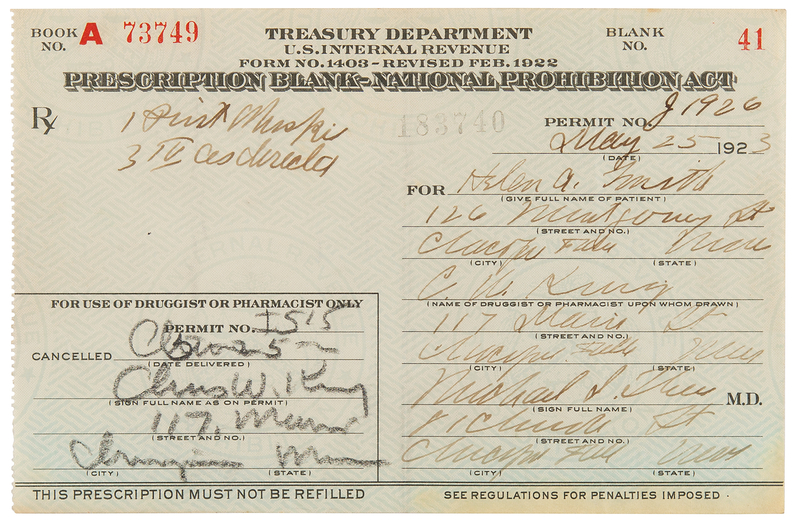 BOOK NO. A 73749
TREASURY DEPARTMENT
U.S. INTERNAL REVENUE
FORM NO. 1403 - REVISED FEB. 1922
BLANK NO. 41
PRESCRIPTION BLANK - NATIONAL PROHIBITION ACT
Rx
1 Pint
3 IV as directed
183740
PERMIT NO. J1926
May 25 1923
(DATE)
FOR Helen A. Smith
(GIVE FULL NAME OF PATIENT)
126 Montgomery St
(STREET AND NO.)
Falls
(CITY) (STATE)
C W King
(NAME OF DRUGGIST OR PHARMACIST UPON WHOM DRAWN)
117 Main St
(STREET AND NO.)
Falls
(CITY) (STATE)
Michael M.D.
(SIGN FULL NAME)
St
(STREET AND NO.)
(CITY) (STATE)
FOR USE OF DRUGGIST OR PHARMACIST ONLY
PERMIT NO. 1515
CANCELLED
(DATE DELIVERED)
W. King
(SIGN FULL NAME AS ON PERMIT)
117, Main
(STREET AND NO.)
(CITY) (STATE)
THIS PRESCRIPTION MUST NOT BE REFILLED
SEE REGULATIONS FOR PENALTIES IMPOSED.